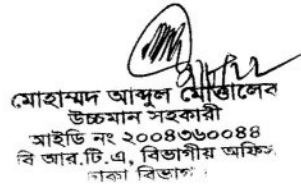 মোহাম্মদ আব্দুল মোত্তালেব
উচ্চমান সহকারী
আইডি নং ২০০৪৩৬০০৪৪
বি আর.টি.এ, বিভাগীয় অফিস
ঢাকা বিভাগ।